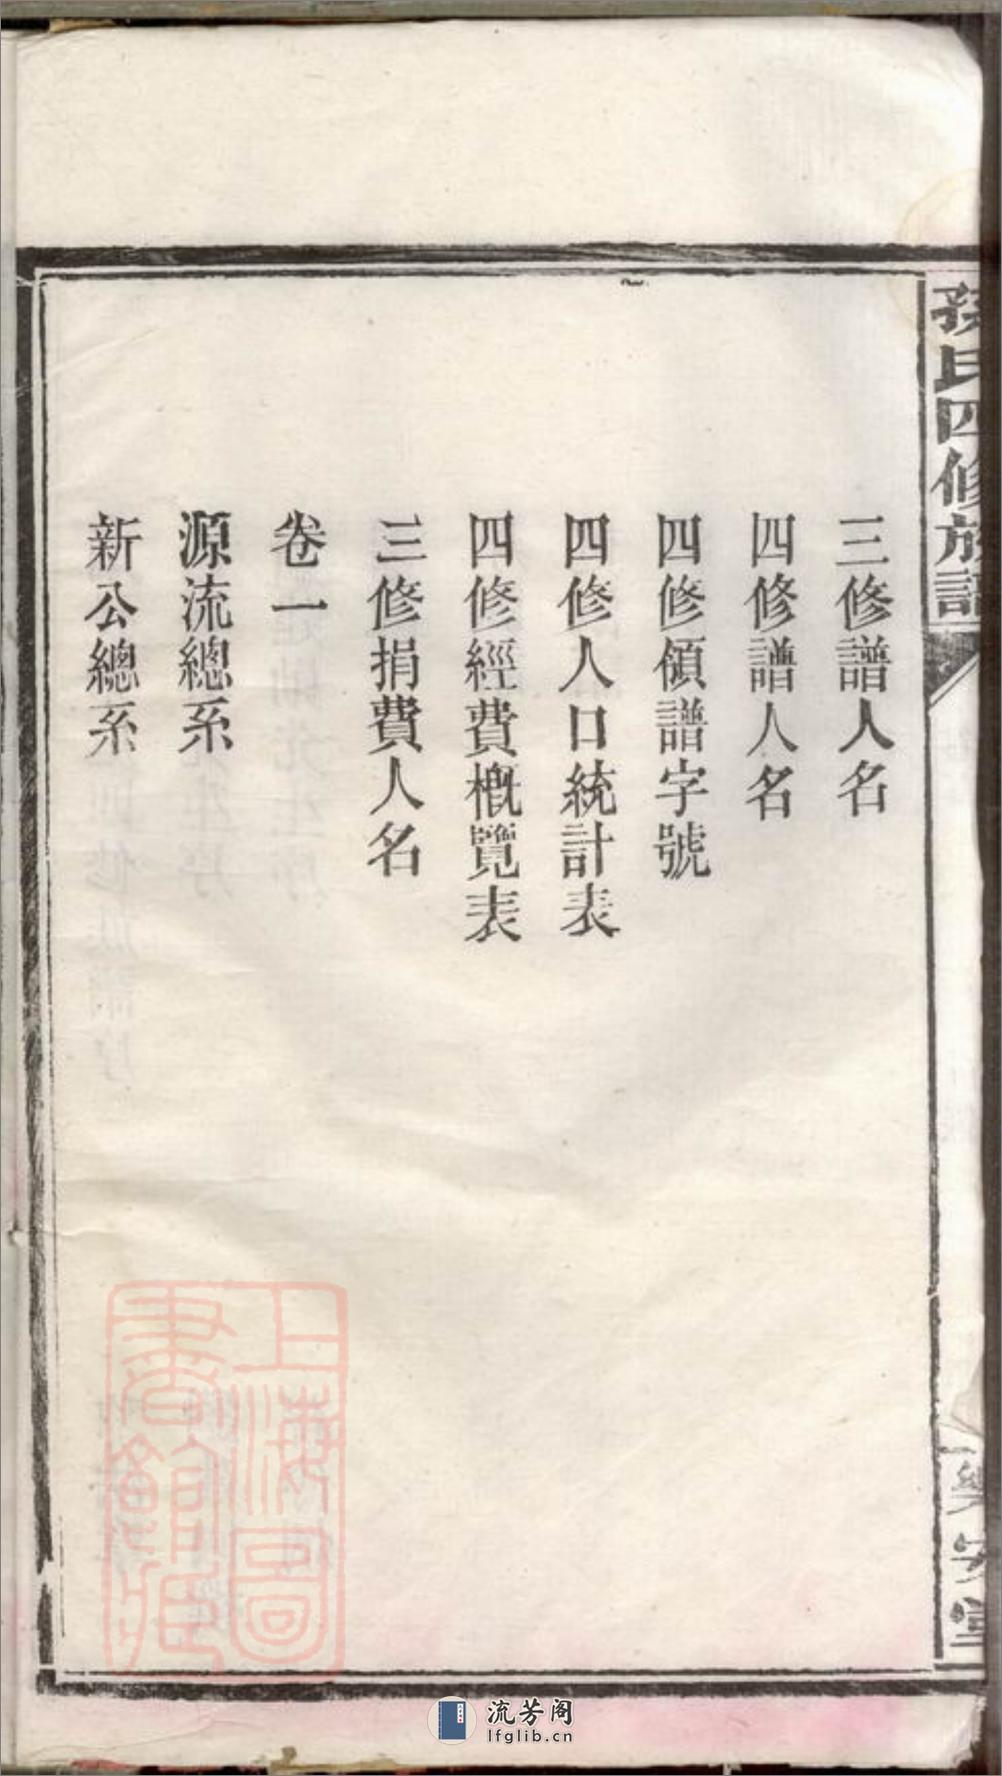 孫氏四修族譜
三修譜人名
四修譜人名
四修領譜字號
四修人口統計表
四修經費概覽表
三修捐費人名
卷一
源流總系
新公總系
樂安堂
上海圖書館藏
流芳阁
lfglib.cn